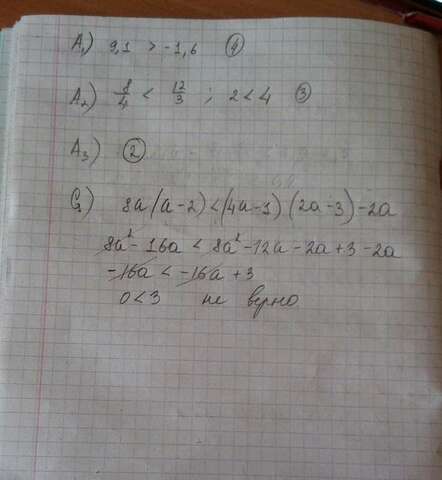 A₁) 9,1 > -1,6 ④
A₂) 8/4 < 12/3 ; 2 < 4 ③
A₃) ②
C₁) 8a(a-2) < (4a-1)(2a-3)-2a
8a² - 16a < 8a² - 12a - 2a + 3 - 2a
-16a < -16a + 3
0 < 3 не верно